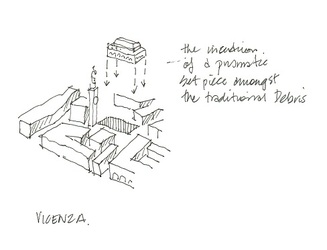 the incursion
of a prismatic
set piece amongst
the traditional Debris
VICENZA.